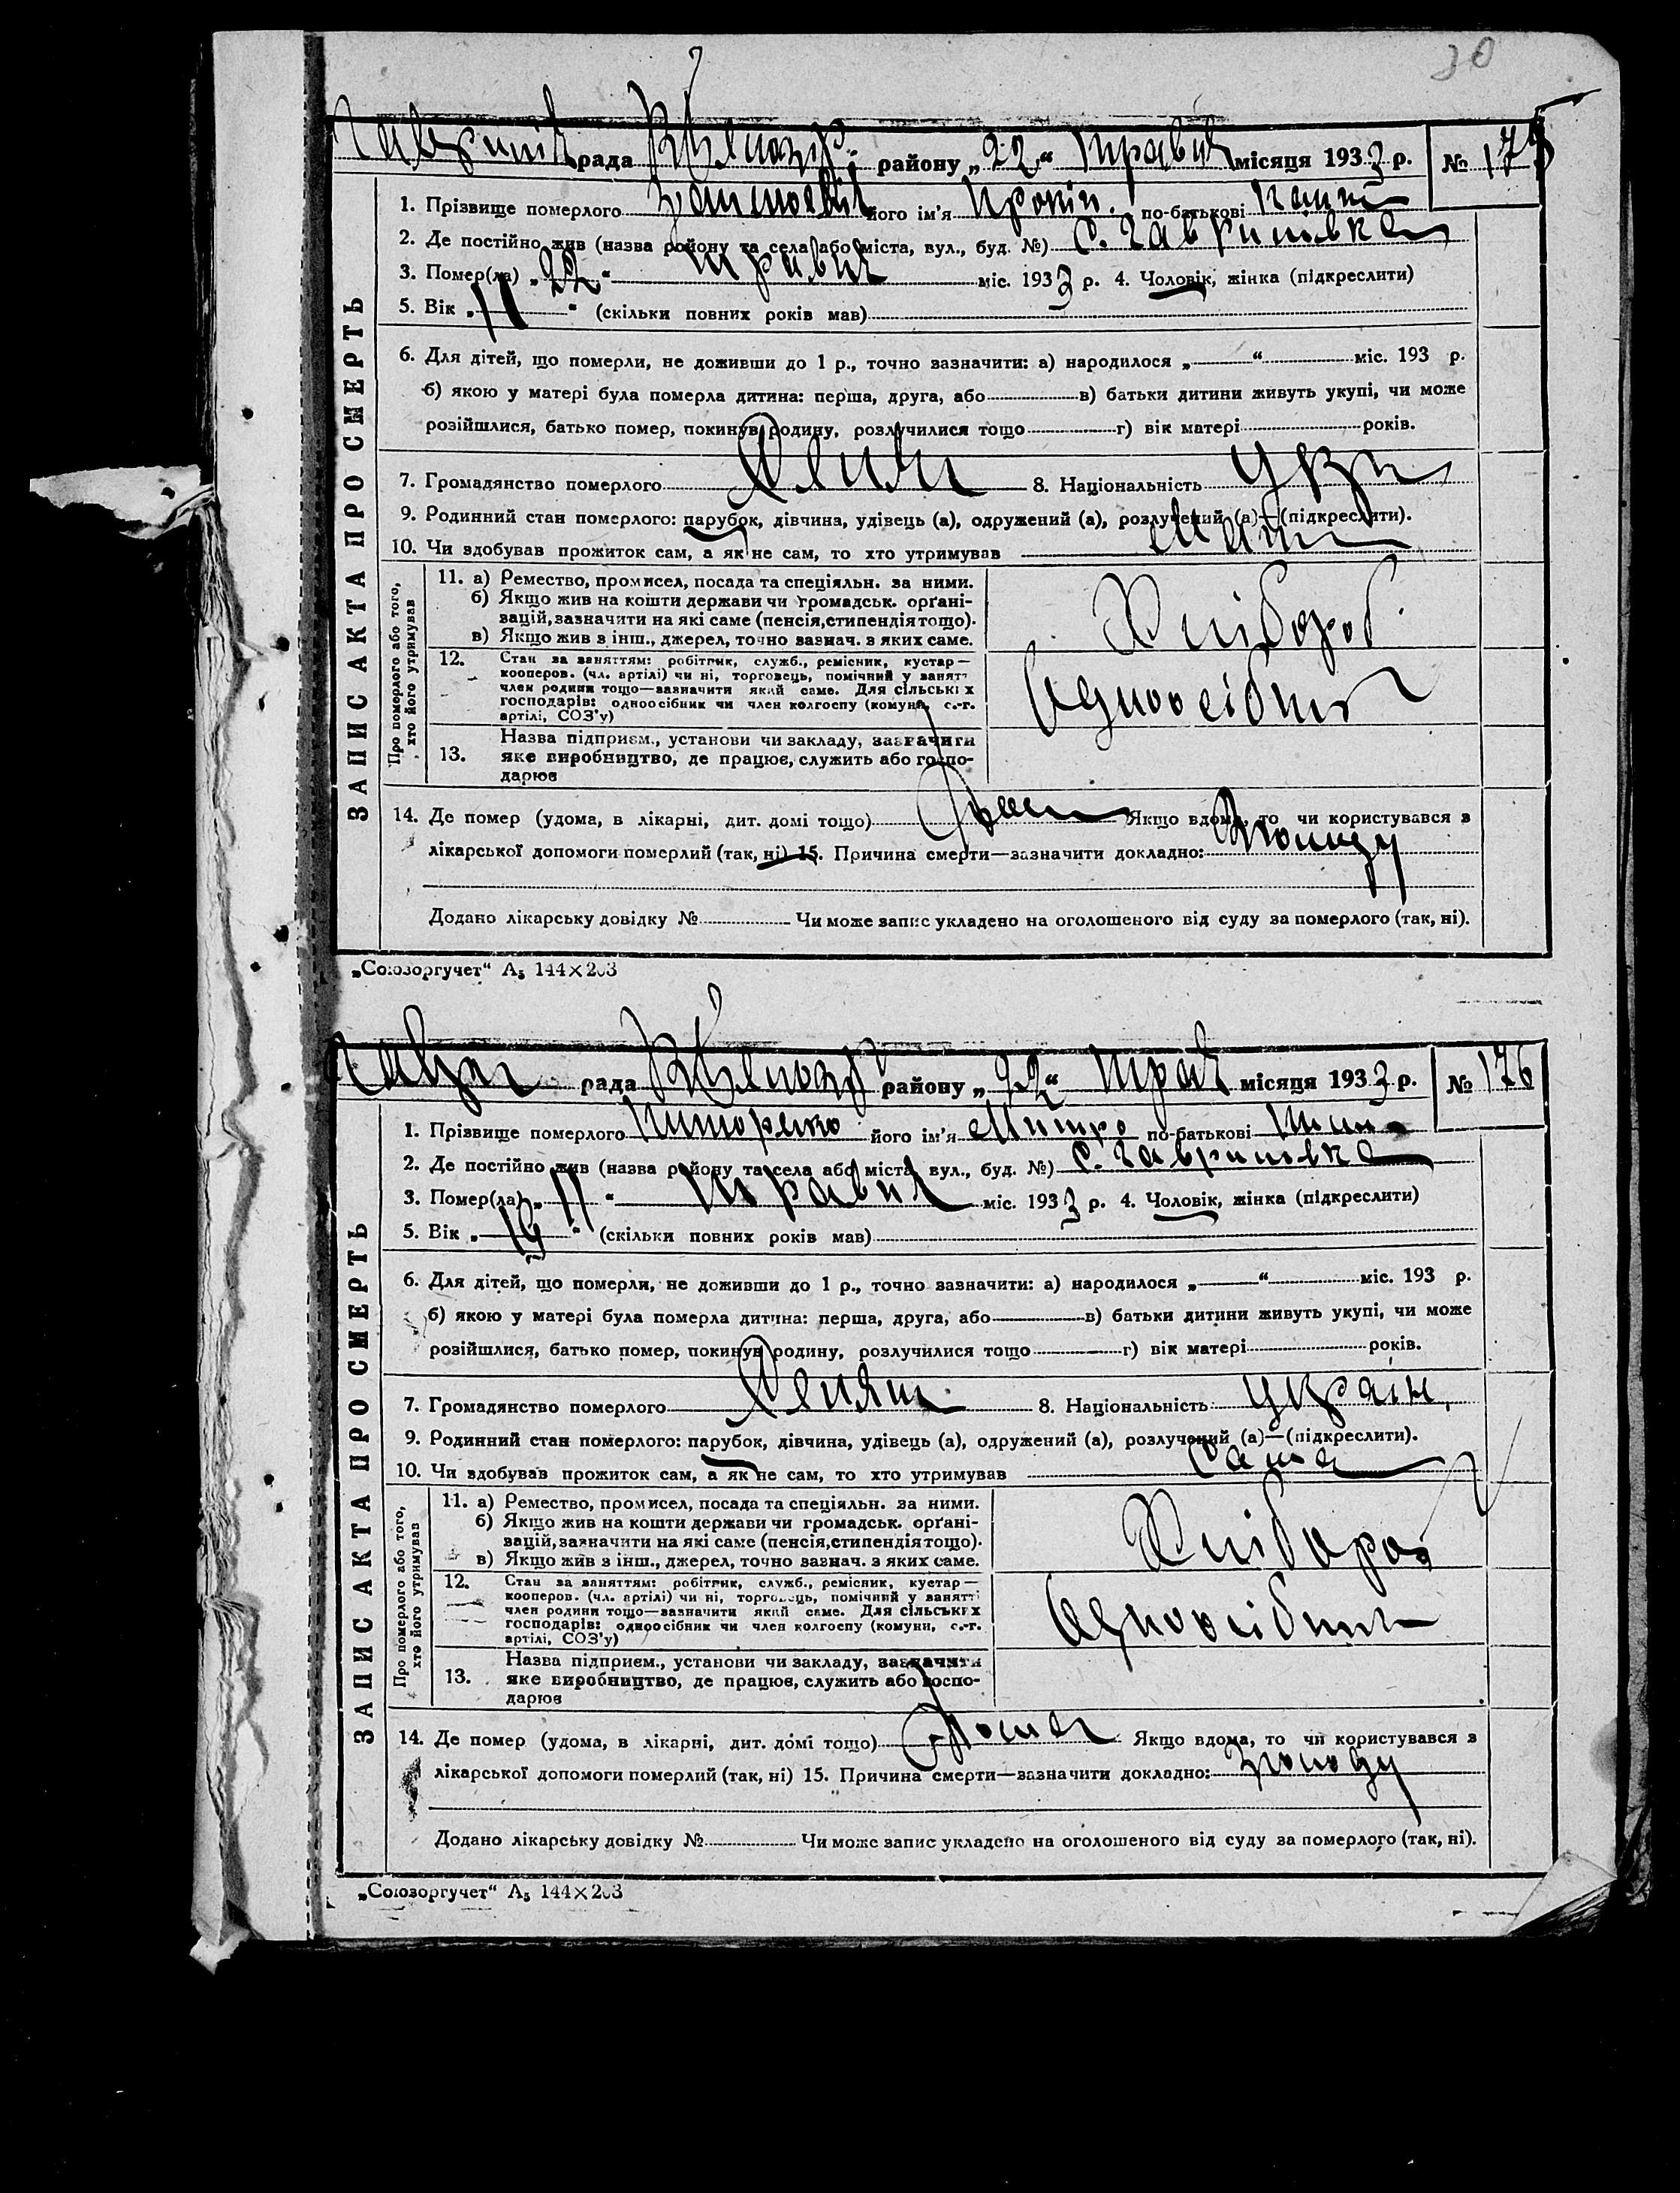 30
рада району „22“ травня місяця 1933 р. № 175
ЗАПИС АКТА ПРО СМЕРТЬ
1. Прізвище померлого його ім'я Прокіп. по-батькові
2. Де постійно жив (назва району та села або міста, вул., буд. №) с. Гавришівка
3. Помер(ла) „22“ травня міс. 1933 р. 4. Чоловік, жінка (підкреслити)
5. Вік „11“ (скільки повних років мав)
6. Для дітей, що померли, не доживши до 1 р., точно зазначити: а) народилося „ “ міс. 193 р.
б) якою у матері була померла дитина: перша, друга, або в) батьки дитини живуть укупі, чи може
розійшлися, батько помер, покинув родину, розлучилися тощо г) вік матері років.
7. Громадянство померлого 8. Національність Укр
9. Родинний стан померлого: парубок, дівчина, удівець (а), одружений (а), розлучений (а)—(підкреслити).
10. Чи здобував прожиток сам, а як не сам, то хто утримував Мати
Про померлого або того, хто його утримував
11. а) Ремество, промисел, посада та спеціяльн. за ними.
б) Якщо жив на кошти держави чи громадськ. орґані-
зацій, зазначити на які саме (пенсія, стипендія тощо).
в) Якщо жив з інш., джерел, точно зазнач. з яких саме.
Хлібороб
12. Стан за заняттям: робітник, служб., ремісник, кустар—
кооперов. (чл. артілі) чи ні, торговець, помічний у занятт
член родини тощо—зазначити який саме. Для сільських
господарів: одноосібник чи член колгоспу (комуни, с.-г.
артілі, СОЗ'у)
Одноосібник
13. Назва підприєм., установи чи закладу, зазначити
яке виробництво, де працює, служить або госпо-
дарює
14. Де помер (удома, в лікарні, дит. домі тощо) Дома Якщо вдома, то чи користувався з
лікарської допомоги померлий (так, ні) 15. Причина смерти—зазначити докладно:
Додано лікарську довідку № Чи може запис укладено на оголошеного від суду за померлого (так, ні).
„Союзоргучет“ А₅ 144×203
рада району „22“ трав місяця 1933 р. № 176
ЗАПИС АКТА ПРО СМЕРТЬ
1. Прізвище померлого його ім'я Митро по-батькові
2. Де постійно жив (назва району та села або міста, вул., буд. №) с. Гавришівка
3. Помер(ла) „11“ травня міс. 1933 р. 4. Чоловік, жінка (підкреслити)
5. Вік „19“ (скільки повних років мав)
6. Для дітей, що померли, не доживши до 1 р., точно зазначити: а) народилося „ “ міс. 193 р.
б) якою у матері була померла дитина: перша, друга, або в) батьки дитини живуть укупі, чи може
розійшлися, батько помер, покинув родину, розлучилися тощо г) вік матері років.
7. Громадянство померлого Селян. 8. Національність україн.
9. Родинний стан померлого: парубок, дівчина, удівець (а), одружений (а), розлучений (а)—(підкреслити).
10. Чи здобував прожиток сам, а як не сам, то хто утримував Сама
Про померлого або того, хто його утримував
11. а) Ремество, промисел, посада та спеціяльн. за ними.
б) Якщо жив на кошти держави чи громадськ. орґані-
зацій, зазначити на які саме (пенсія, стипендія тощо).
в) Якщо жив з інш., джерел, точно зазнач. з яких саме.
Хлібороб
12. Стан за заняттям: робітник, служб., ремісник, кустар—
кооперов. (чл. артілі) чи ні, торговець, помічний у занятті
член родини тощо—зазначити який саме. Для сільських
господарів: одноосібник чи член колгоспу (комуни, с.-г.
артілі, СОЗ'у)
Одноосібник
13. Назва підприєм., установи чи закладу, зазначити
яке виробництво, де працює, служить або госпо-
дарює
14. Де помер (удома, в лікарні, дит. домі тощо) Дома Якщо вдома, то чи користувався з
лікарської допомоги померлий (так, ні) 15. Причина смерти—зазначити докладно: зголоду
Додано лікарську довідку № Чи може запис укладено на оголошеного від суду за померлого (так, ні).
„Союзоргучет“ А₅ 144×203